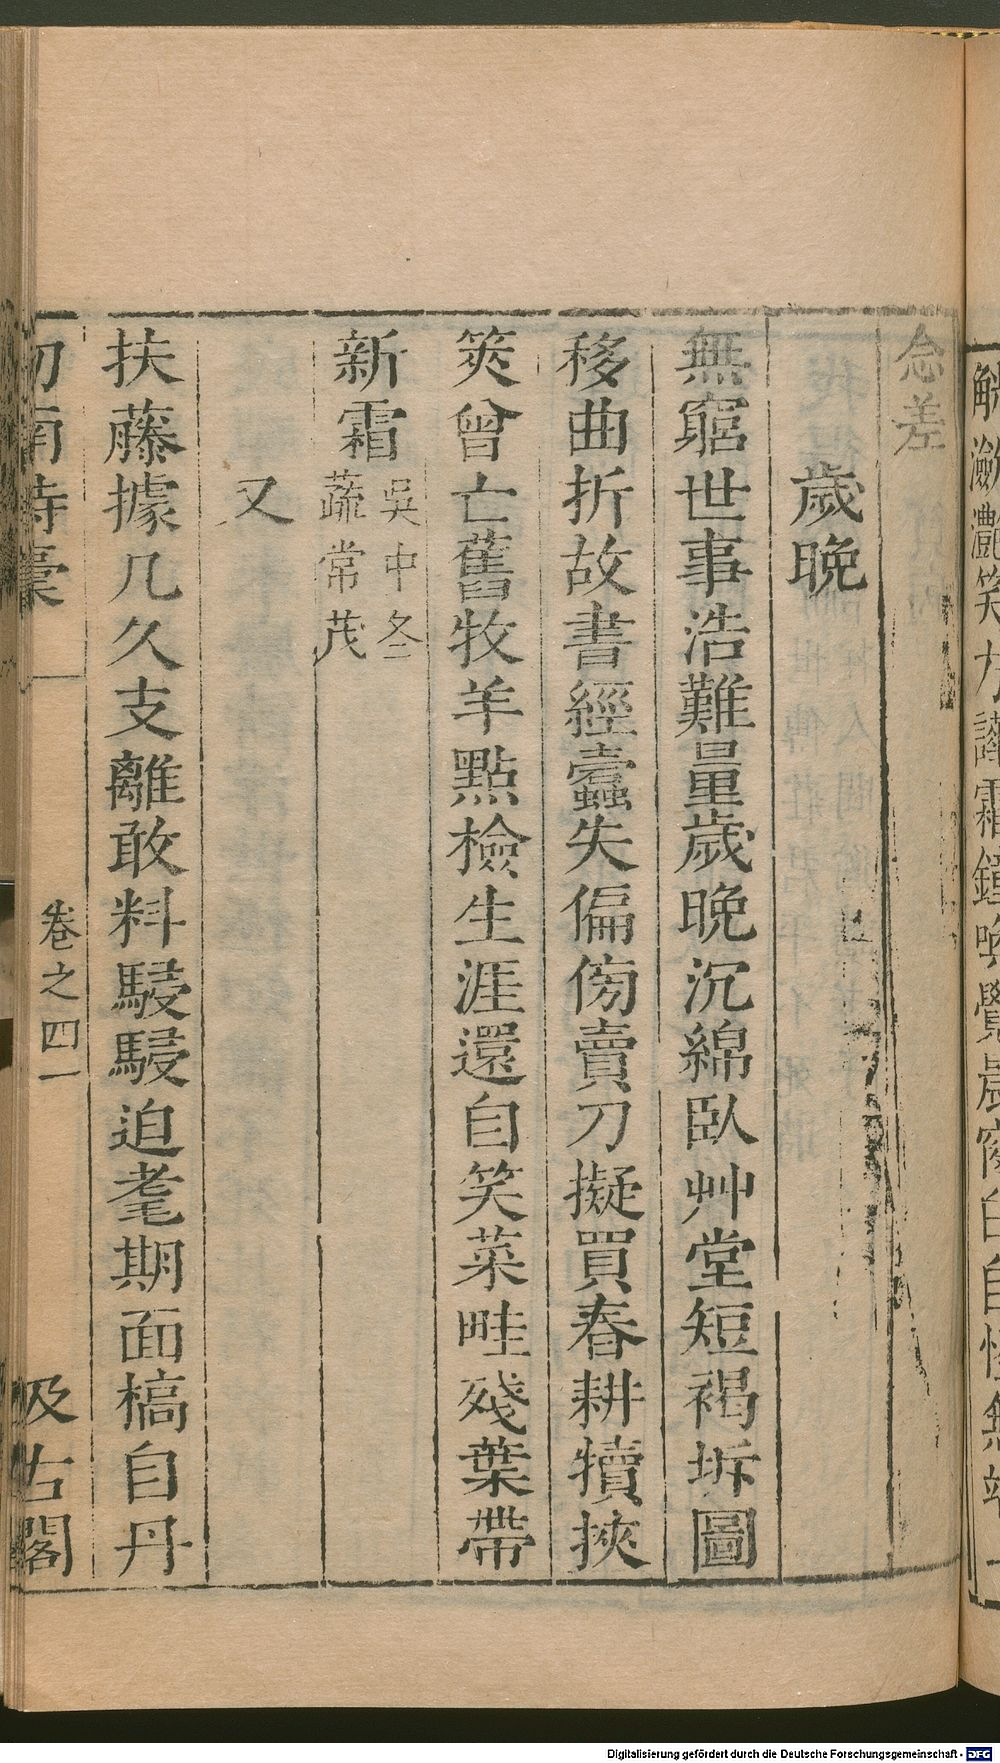 念差
歲晚
無窮世事浩難量歲晚沉綿臥艸堂短褐坼圖
移曲折故書經蠹失偏傍賣刀擬買春耕犢挾
筴曾亡舊牧羊點檢生涯還自笑菜畦殘葉帶
新霜吳中冬蔬常茂
又
扶藤據几久支離敢料駸駸迫耄期面槁自丹
劒南詩稾 卷之四一 汲古閣
Digitalisierung gefördert durch die Deutsche Forschungsgemeinschaft - DFG